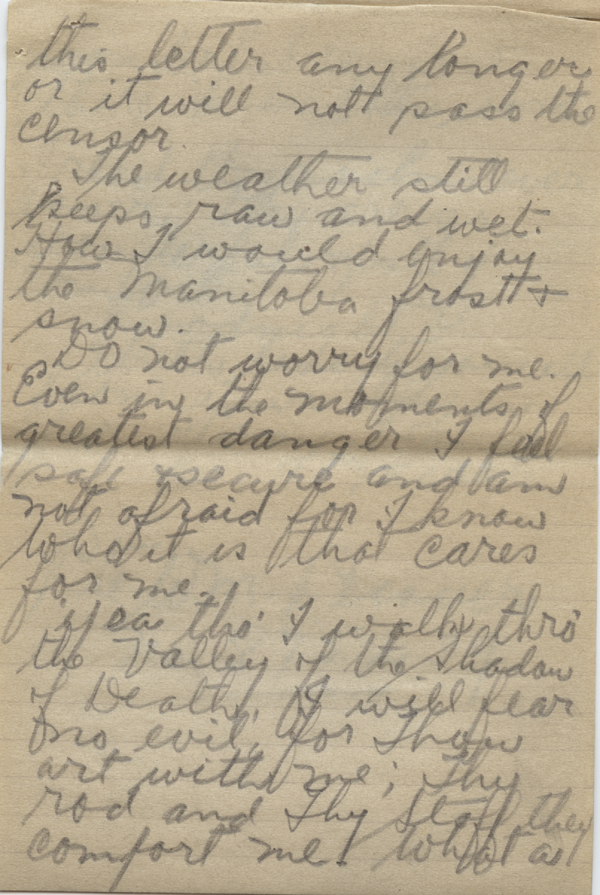 this letter any longer
or it will not pass the
censor.
The weather still
keeps raw and wet.
How I would enjoy
the Manitoba frost +
snow.
Do not worry for me.
Even in the moments of
greatest danger I feel
safe & secure and am
not afraid for I know
Who it is that cares
for me.
"Yea tho' I walk thro'
the Valley of the Shadow
of Death, I will fear
no evil, for Thou
art with me; Thy
rod and Thy Staff they
comfort me. What a